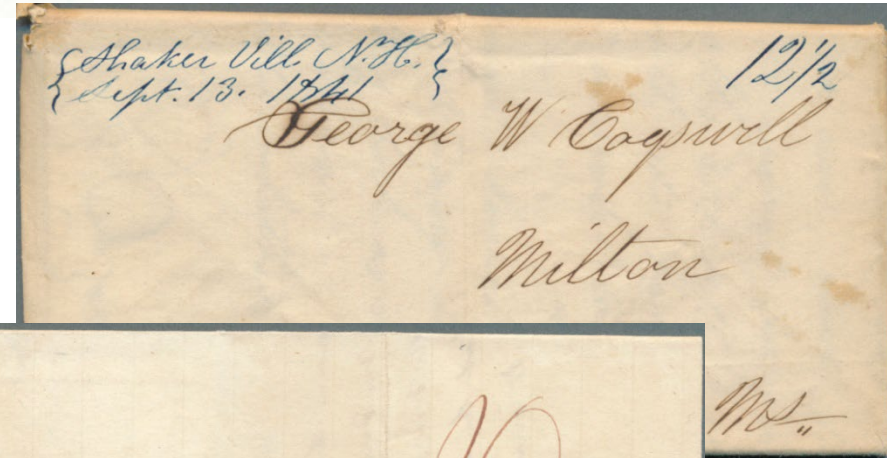 {Shaker Vill. N.H.}
{Sept. 13. 1841} 12 1/2
George W Cogswell
Milton
Ms